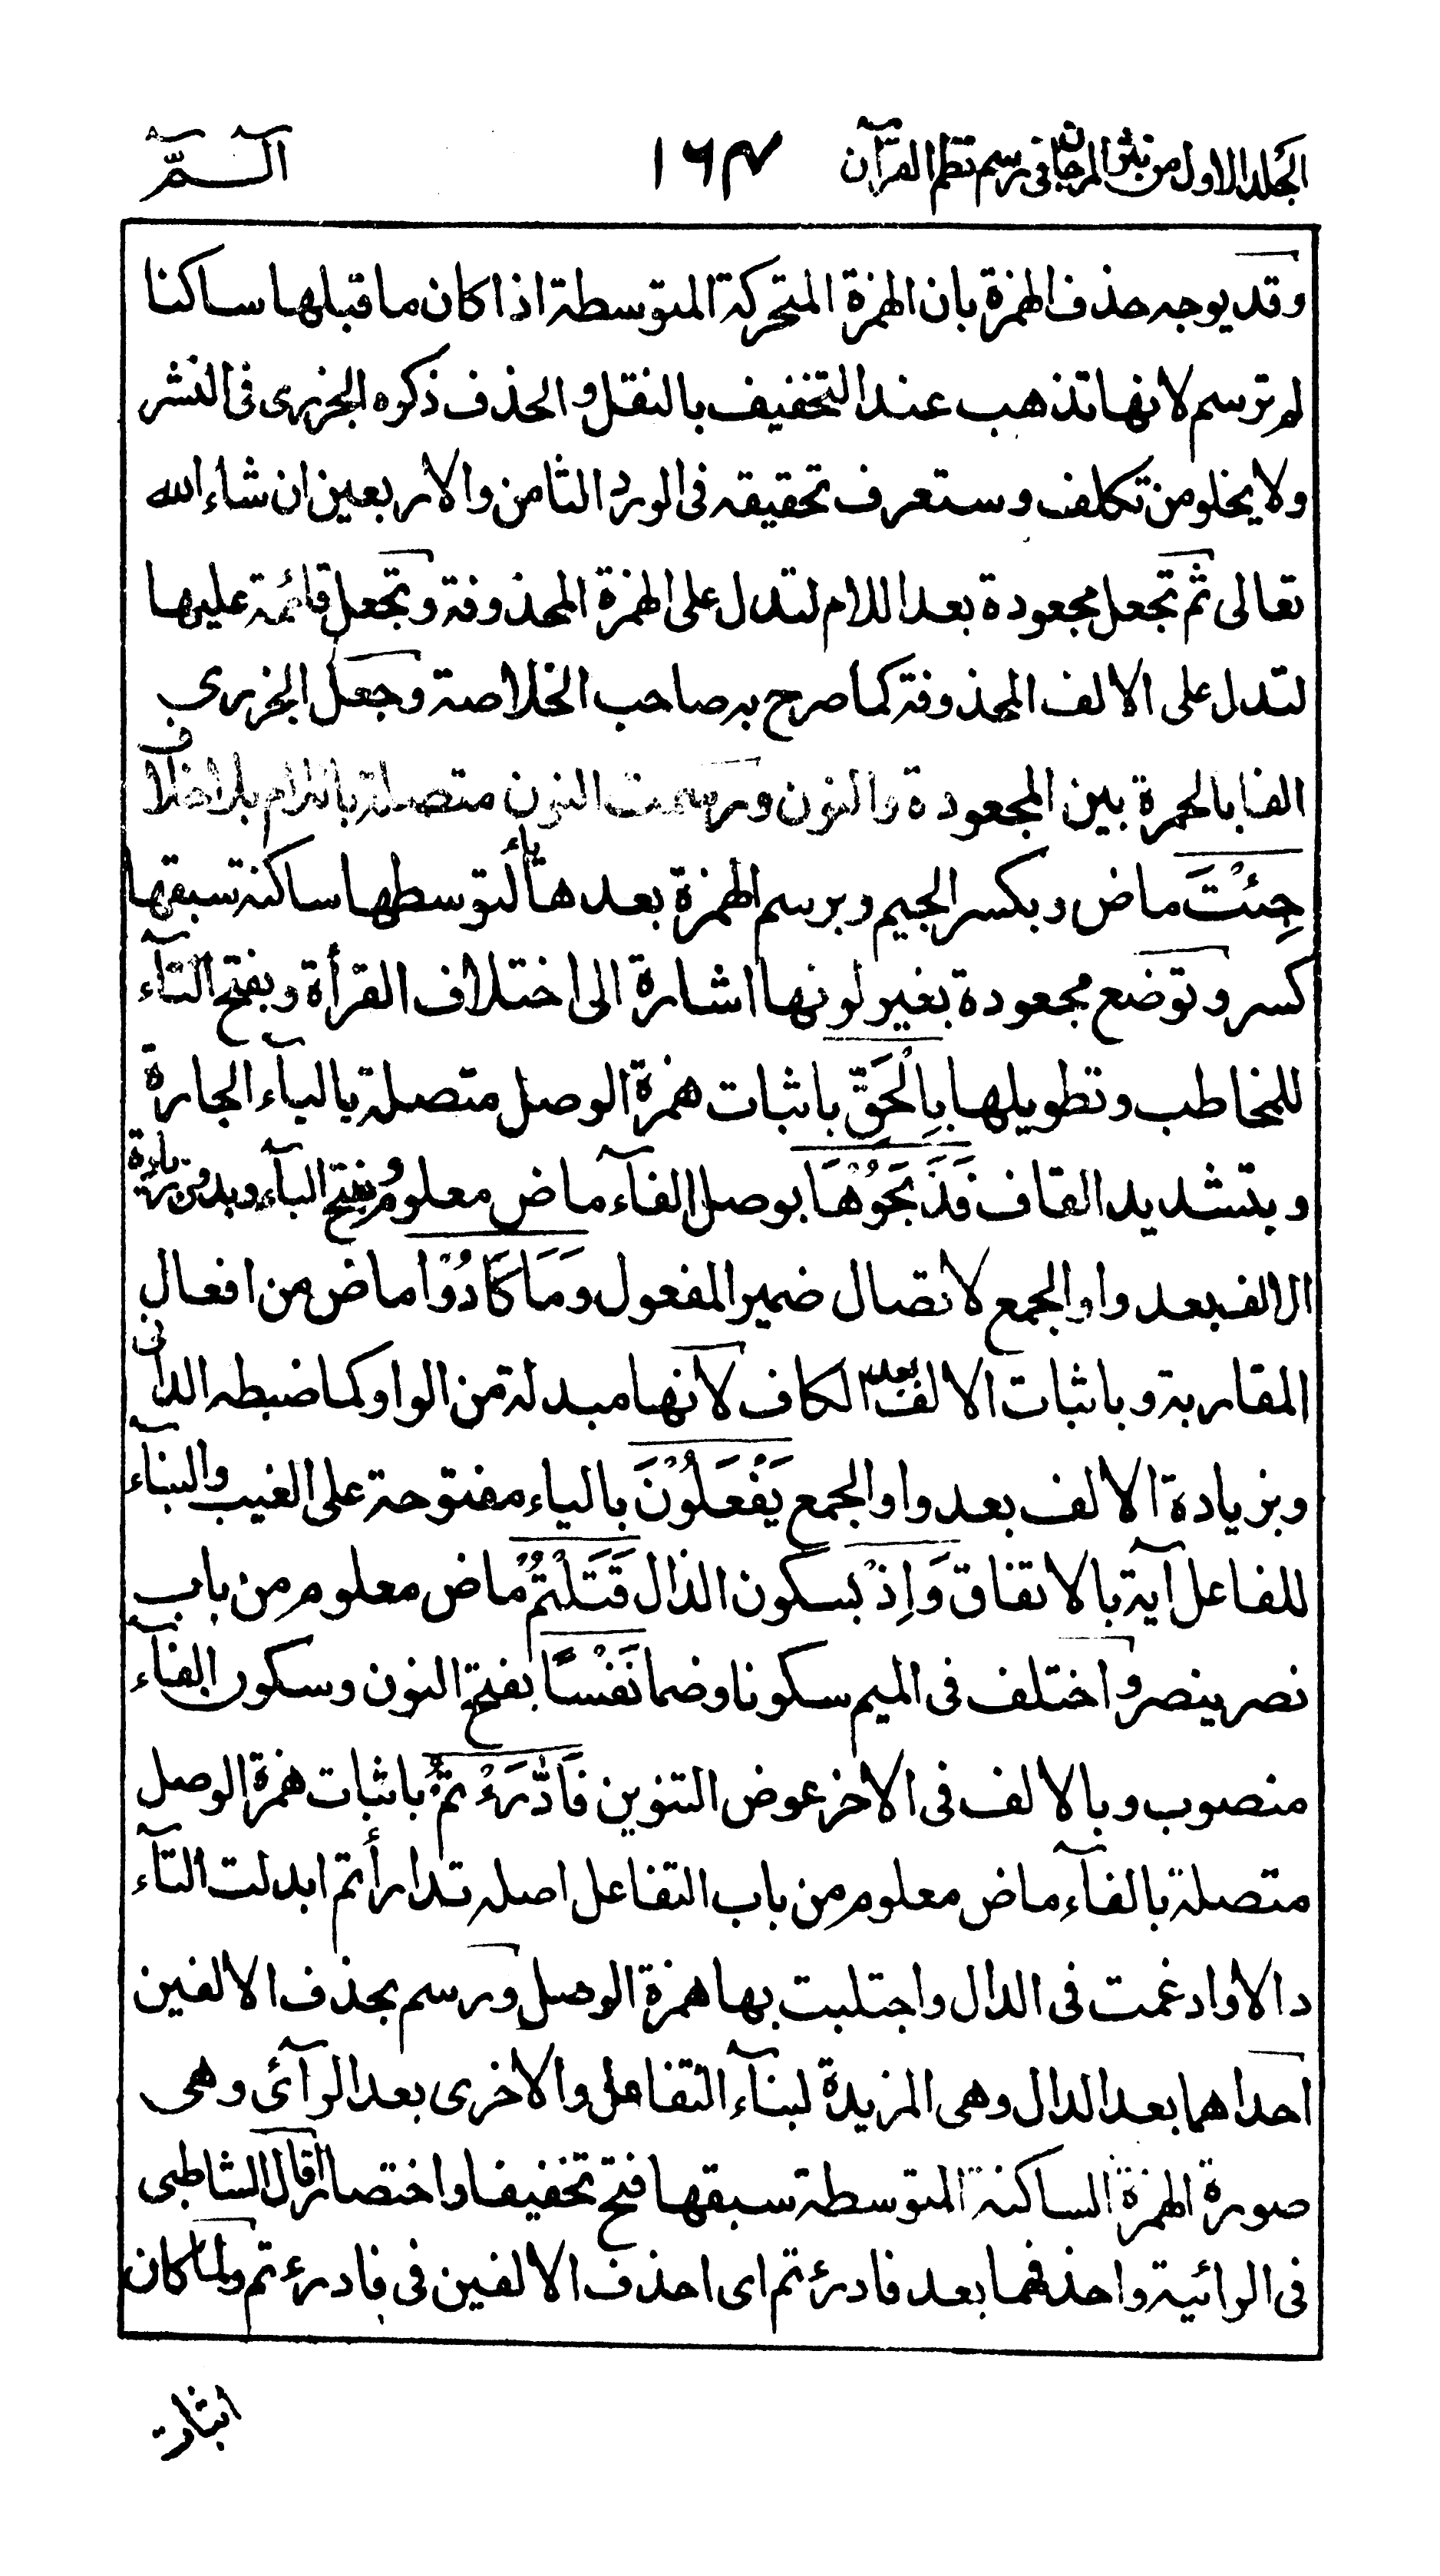 الجلد الاول من نثر المرجان فى رسم نظم القرآن ١٦٧ الٓمّٓ
وقد يوجه حذف الهمزة بان الهمزة المتحركة المتوسطة اذا كان ما قبلها ساكنا
لم ترسم لانها تذهب عند التخفيف بالنقل والحذف ذكره الجزرى فى النشر
ولا يخلو من تكلف وستعرف تحقيقه فى الورد الثامن والاربعين ان شاء الله
تعالى ثم تجعل مجعودة بعد اللام لتدل على الهمزة المحذوفة وتجعل قائمة عليها
لتدل على الالف المحذوفة كما صرح به صاحب الخلاصة وجعل الجزرى
الفا بالحمرة بين المجعودة والنون ورسمت النون متصلة باللام بلا خلاف
جِئْتَ ماض وبكسر الجيم وبرسم الهمزة بعدها ياء لتوسطها ساكنة سبقها
كسر وتوضع مجعودة بغير لونها اشارة الى اختلاف القرأة وبفتح التآء
للمخاطب وتطويلها بِالْحَقِّ باثبات همزة الوصل متصلة بالبآء الجارة
وبتشديد القاف فَذَبَحُوْهَا بوصل الفآء ماض معلوم وبفتح البآء وبدون زيادة
الالف بعد واو الجمع لاتصال ضمير المفعول وَمَا كَادُوْا ماض من افعال
المقاربة وباثبات الالف بعد الكاف لانها مبدلة من الواو كما ضبطه الدانى
وبزيادة الالف بعد واو الجمع يَفْعَلُوْنَ بالياء مفتوحة على الغيب والبنآء
للفاعل آية بالاتفاق وَاِذْ بسكون الذال قَتَلْتُمْ ماض معلوم من باب
نصر ينصر واختلف فى الميم سكونا وضما نَفْسًا بفتح النون وسكون الفآء
منصوب وبالالف فى الاخر عوض التنوين فَادّٰرَءْتُمْ باثبات همزة الوصل
متصلة بالفآء ماض معلوم من باب التفاعل اصله تدارأتم ابدلت التآء
دالا وادغمت فى الدال واجتلبت بها همزة الوصل ورسم بحذف الالفين
احداهما بعد الدال وهى المزيدة لبنآء التفاعل والاخرى بعد الرآئ وهى
صورة الهمزة الساكنة المتوسطة سبقها فتح تخفيفا واختصارا قال الشاطبى
فى الرائية واحذفهما بعد فادرءتم اى احذف الالفين فى فادرءتم ولما كان
اثبات